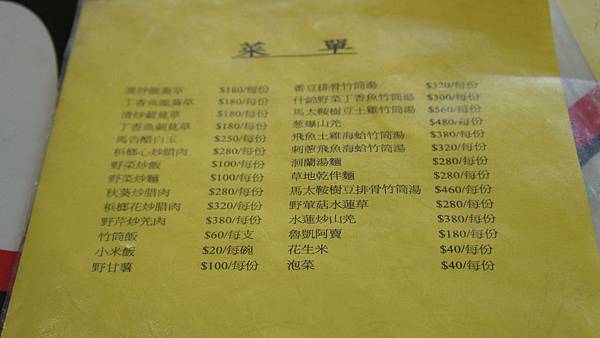 菜 單
清炒龍葵草 $180/每份
丁香魚龍葵草 $180/每份
清炒莧草 $180/每份
丁香魚莧草 $180/每份
馬告醋白玉 $250/每份
檳榔心炒腊肉 $280/每份
野菜炒飯 $100/每份
野菜炒麵 $100/每份
秋葵炒腊肉 $280/每份
檳榔花炒腊肉 $320/每份
野芹炒羌肉 $380/每份
竹筒飯 $60/每支
小米飯 $20/每碗
野甘薯 $100/每份
番豆排骨竹筒湯 $320/每份
什錦野菜丁香魚竹筒湯 $300/每份
馬太鞍樹豆土雞竹筒湯 $560/每份
蔥爆山羌 $480/每份
飛魚土雞海蛤竹筒湯 $380/每份
刺蔥飛魚海蛤竹筒湯 $320/每份
洄蘭湯麵 $280/每份
草地乾伴麵 $280/每份
馬太鞍樹豆排骨竹筒湯 $460/每份
野菇水蓮草 $280/每份
水蓮炒山羌 $380/每份
魯凱阿賣 $180/每份
花生米 $40/每份
泡菜 $40/每份